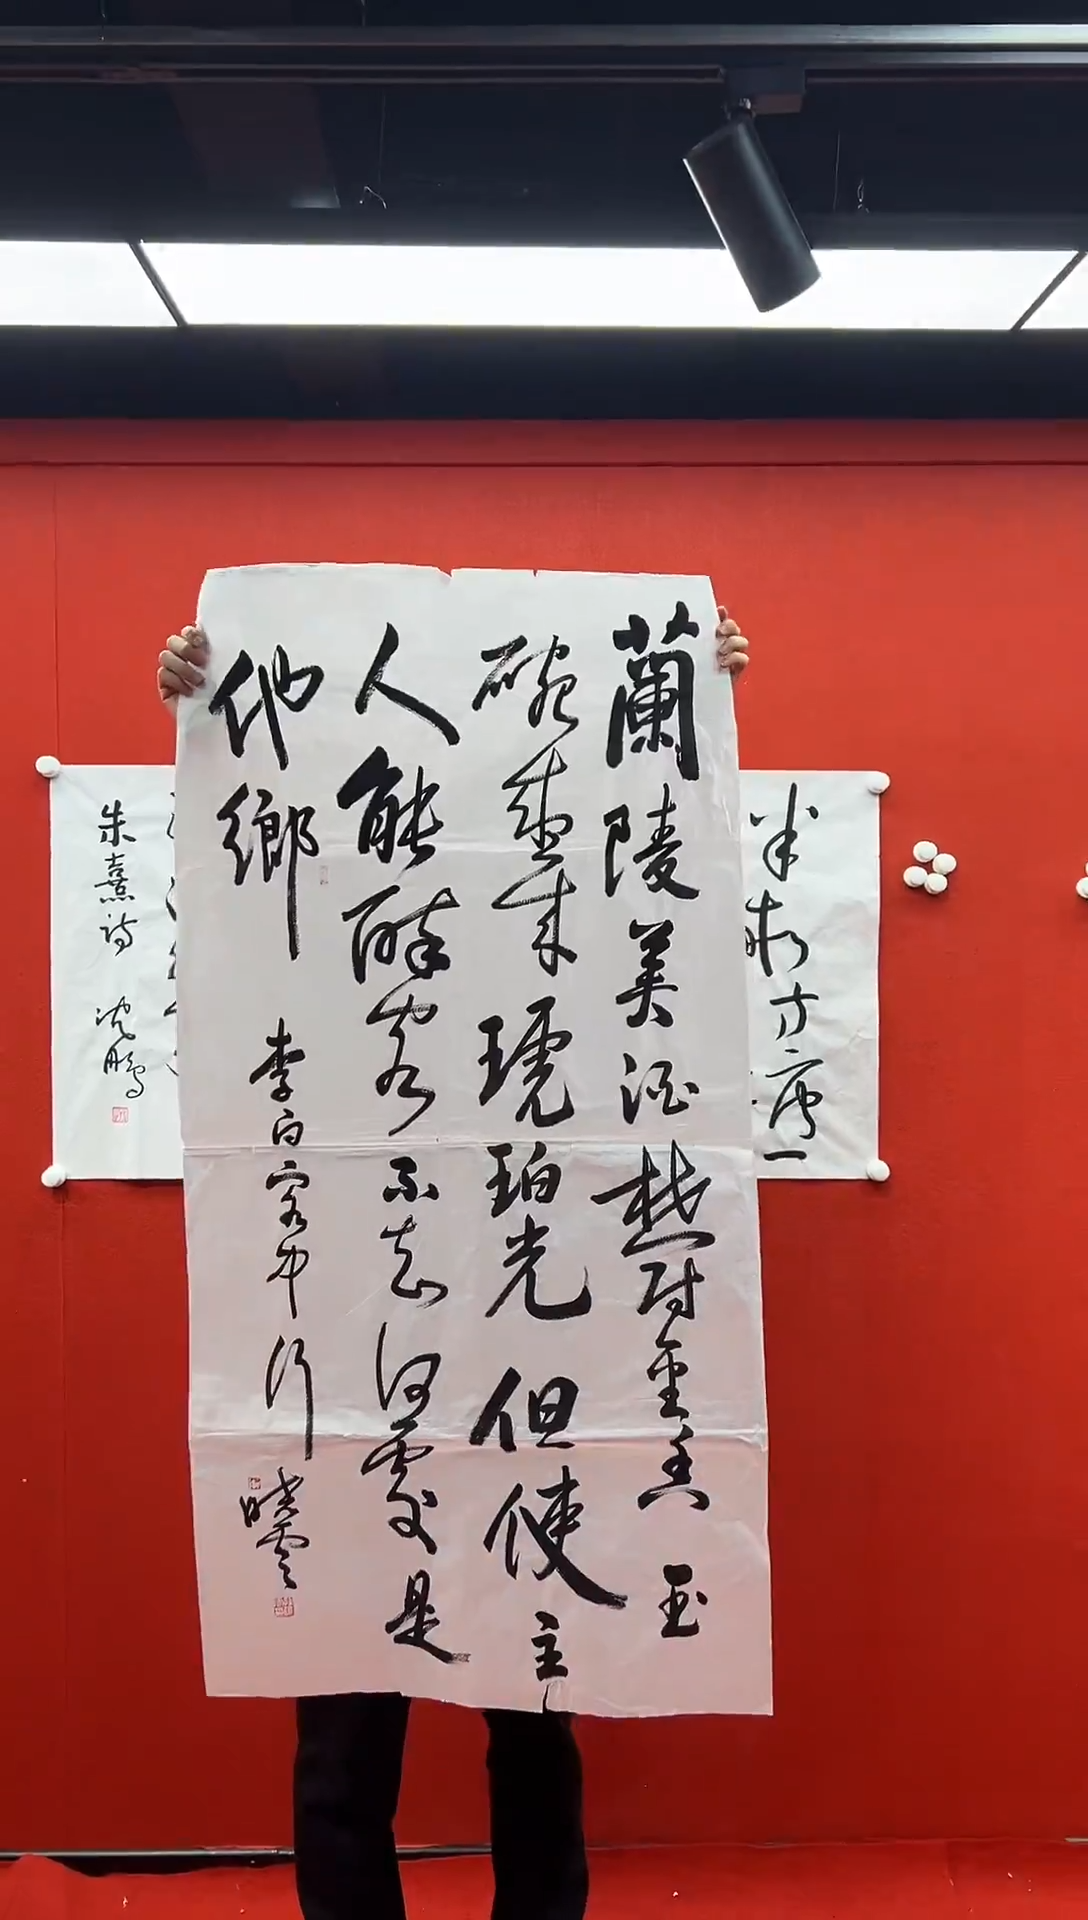 蘭陵美酒鬱金香玉
碗盛来琥珀光但使主
人能醉客不知何處是
他鄉
李白客中行
曉雲
半畝方塘一
朱熹詩
沈鵬